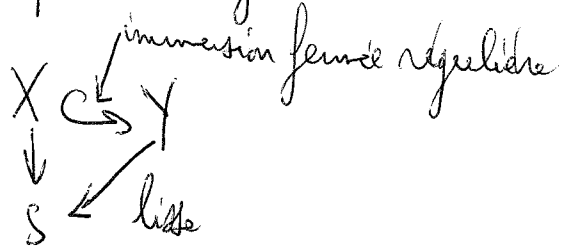 immersion fermée régulière
X Y
S lisse